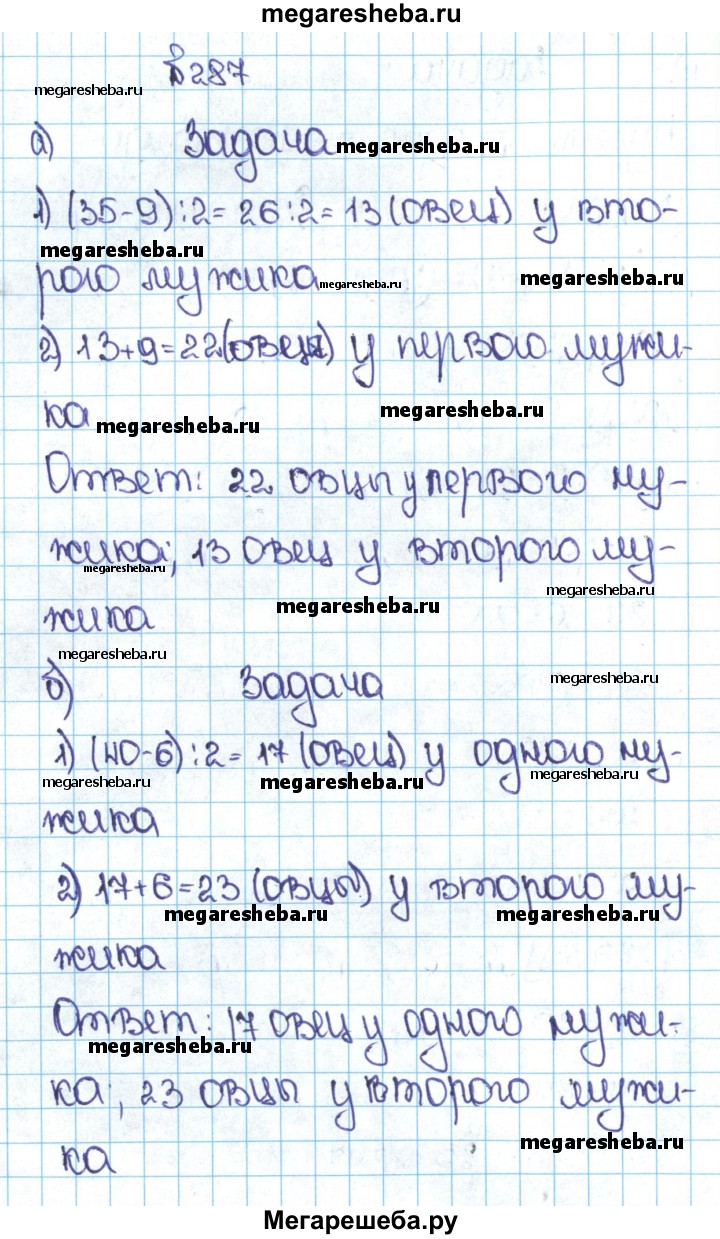 megaresheba.ru
№287
megaresheba.ru
а) Задача megaresheba.ru
1) (35-9):2=26:2=13 (овец) у вто-
megaresheba.ru
рого мужика megaresheba.ru megaresheba.ru
2) 13+9=22 (овец) у первого мужи-
ка megaresheba.ru megaresheba.ru
Ответ: 22 овцы у первого му-
жика; 13 овец у второго му-
megaresheba.ru megaresheba.ru
жика megaresheba.ru
megaresheba.ru
б) Задача megaresheba.ru
1) (40-6):2=17 (овец) у одного му-
megaresheba.ru megaresheba.ru megaresheba.ru
жика
2) 17+6=23 (овцы) у второго му-
megaresheba.ru megaresheba.ru
жика
Ответ: 17 овец у одного мужи-
megaresheba.ru
ка; 23 овцы у второго мужи-
ка megaresheba.ru
Мегарешеба.ру